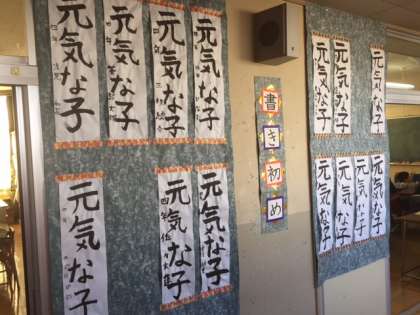 元気な子
元気な子
元気な子
元気な子
元気な子
元気な子
元気な子
書き初め
元気な子
元気な子
元気な子
元気な子
元気な子
元気な子
元気な子